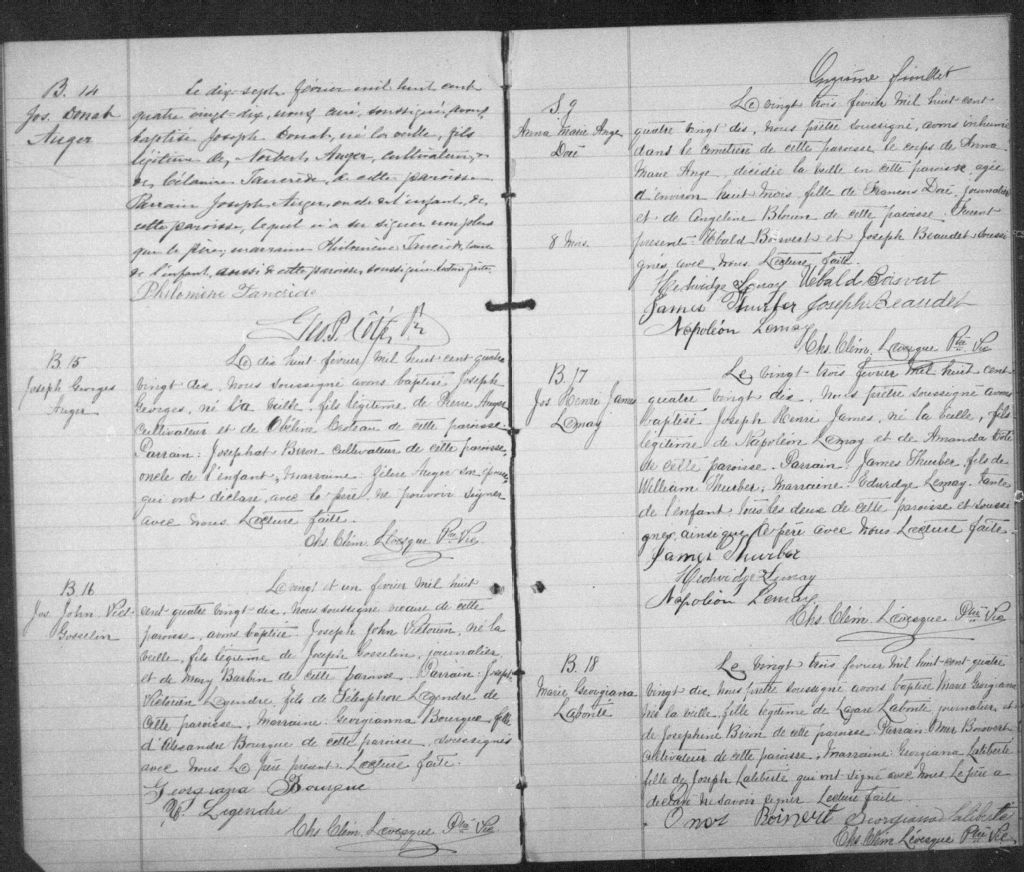 B. 14
Jos. Donat
Auger
Le dix-sept février mil huit cent
quatre vingt-dix, nous curé, soussigné, avons
baptisé Joseph Donat, né la veille, fils
légitime de Norbert Auger, cultivateur, &
de Célanire Tancrède, de cette paroisse
Parrain Joseph Auger, oncle de l'enfant, de
cette paroisse, lequel n'a su signer non plus
que le père, marraine Philomène Tancrède, tante
de l'enfant, aussi de cette paroisse, soussignée. Lecture faite.
Philomène Tancrède
Geo. P. Côté, Ptr
B. 15
Joseph Georges
Auger
Le dix huit février mil huit cent quatre
vingt dix, nous soussigné avons baptisé Joseph
Georges, né la veille, fils légitime de Pierre Auger
cultivateur et de Obéline de cette paroisse.
Parrain: Josephat Biron cultivateur de cette paroisse,
oncle de l'enfant, marraine: Zélire Auger son épouse,
qui ont déclaré, avec le père, ne pouvoir signer
avec nous. Lecture faite.
Chs Clém. Lévesque Ptre Vic
B. 16
Jos. John Vict.
Gosselin
Le vingt et un février mil huit
cent quatre vingt dix, nous soussigné vicaire de cette
paroisse, avons baptisé Joseph John Victorien, né la
veille, fils légitime de Joseph Gosselin, journalier,
et de Mary Barbin de cette paroisse. Parrain: Joseph
Victorien Legendre, fils de Télesphore Legendre de
cette paroisse, Marraine: Georgianna Bourque, fille
d'Alexandre Bourque de cette paroisse, soussignés
avec nous. Le père présent. Lecture faite.
Georgiana Bourque
V. Legendre
Chs Clém. Lévesque Ptre Vic
Onzième feuillet
S. 9
Anna Marie Ange
Doré
8 Mois
Le vingt trois février mil huit cent
quatre vingt dix, nous prêtre soussigné, avons inhumé
dans le cimetière de cette paroisse le corps de Anna
Marie Ange, décédée la veille en cette paroisse, agée
d'environ huit mois, fille de Francois Doré, journalier
et de Angeline Blouin de cette paroisse. Furent
présents Ubald Boisvert et Joseph Beaudet soussi-
gnés avec nous. Lecture faite.
Hedwidge Lemay Uebald Boisvert
James Thurber Joseph Beaudet
Napoléon Lemay
Chs Clém. Lévesque Ptre Vic
B. 17
Jos Henri James
Lemay
Le vingt trois février mil huit cent
quatre vingt dix, nous prêtre soussigné avons
baptisé Joseph Henri James, né la veille, fils
légitime de Napoléon Lemay et de Amanda Coté
de cette paroisse. Parrain: James Thurber, fils de
William Thurber, Marraine Edwidge Lemay, tante
de l'enfant tous les deux de cette paroisse et soussi-
gnés, ainsi que le père avec nous. Lecture faite
James Thurber
Hedwidge Lemay
Napoléon Lemay
Chs Clém. Lévesque Ptre Vic
B. 18
Marie Georgiana
Labonté
Le vingt trois février mil huit-cent quatre
vingt dix, nous prêtre soussigné avons baptisé Marie Georgiana
née la veille, fille légitime de Lazare Labonté journalier, et
de Josephine Biron de cette paroisse. Parrain Omer Boisvert
cultivateur de cette paroisse, Marraine: Georgiana Laliberté
fille de Joseph Laliberté qui ont signé avec nous. Le père a
déclaré ne savoir signer. Lecture faite.
Omer Boivert Georgiana Laliberté
Chs Clém. Lévesque Ptre Vic